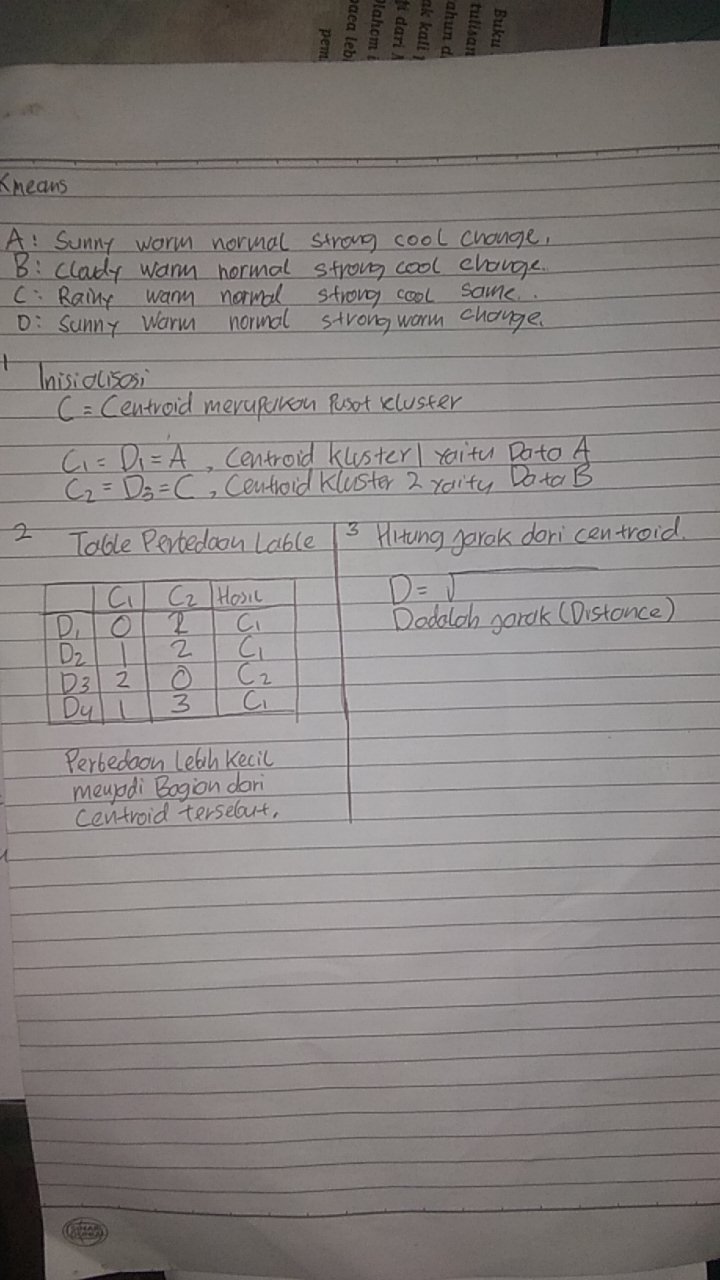 Buku
tulisan
ahun d
ak kali
ti dari
lahom
baca leb
pem
Kmeans
A: Sunny warm normal strong cool change.
B: Clady warm normal strong cool change.
C: Rainy warm normal strong cool same.
D: Sunny Warm normal strong warm change.
1
Inisialisasi
C = Centroid merupakan Pusat kluster
C1 = D1 = A, Centroid kluster 1 yaitu Data A
C2 = D3 = C, Centroid Kluster 2 yaitu Data B
2 Table Perbedaan Lable
C1 C2 Hasil
D1 0 2 C1
D2 1 2 C1
D3 2 0 C2
D4 1 3 C1
Perbedaan Lebih Kecil
menjadi Bagian dari
Centroid tersebut.
3 Hitung jarak dari centroid.
D = √
D adalah jarak (Distance)